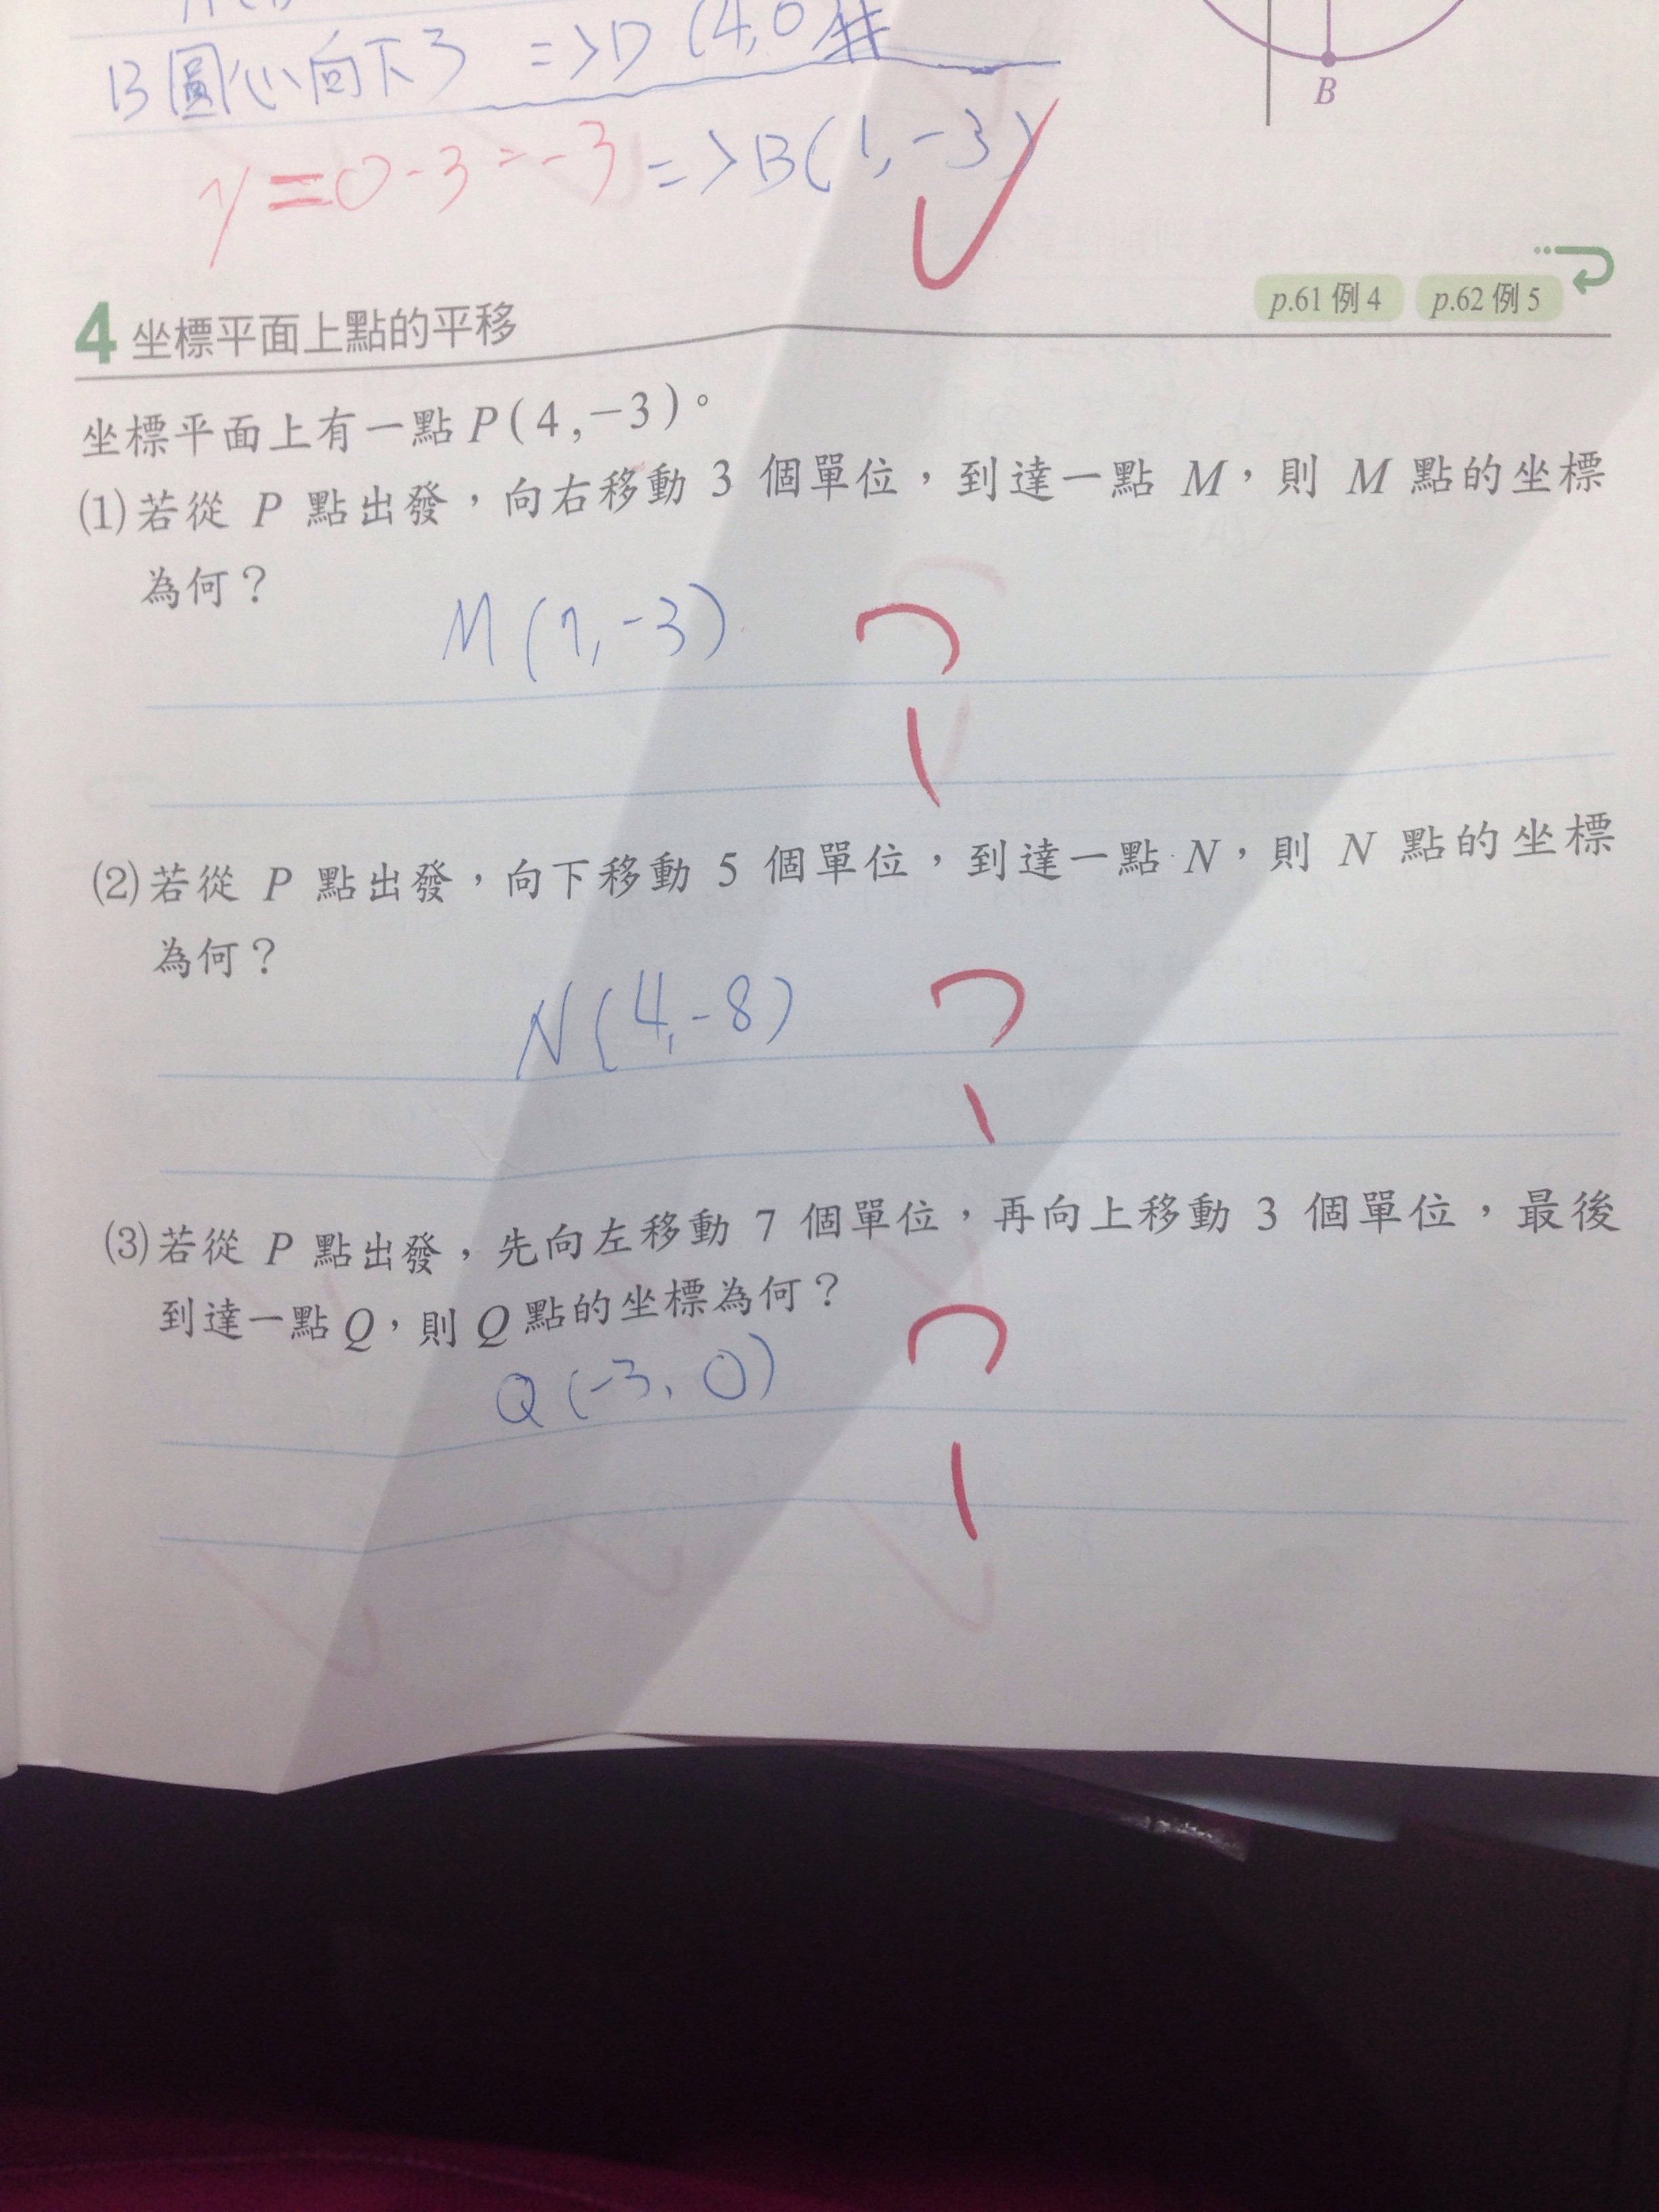 B圓心向下3 => D (4,0)#
B
y=0-3=-3 => B(1,-3)
p.61 例 4 p.62 例 5
4 坐標平面上點的平移
坐標平面上有一點 P(4,-3)。
(1)若從 P 點出發,向右移動 3 個單位,到達一點 M,則 M 點的坐標
為何?
M(7,-3)
?
(2)若從 P 點出發,向下移動 5 個單位,到達一點 N,則 N 點的坐標
為何?
N(4,-8)
?
(3)若從 P 點出發,先向左移動 7 個單位,再向上移動 3 個單位,最後
到達一點 Q,則 Q 點的坐標為何?
Q(-3,0)
?